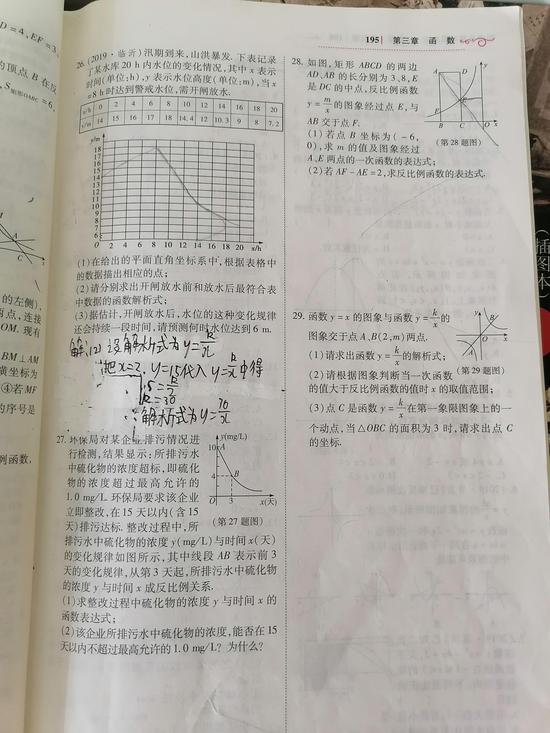 195 第三章 函 数
D=4,EF=3
的顶点B在反
S矩形OABC=6,
的左侧),
两点,连接
OM.现有
BM⊥AM
横坐标为
④若MF
的序号是
例函数.
26.(2019·临沂)汛期到来,山洪暴发.下表记录
了某水库20 h内水位的变化情况,其中x表示
时间(单位:h),y表示水位高度(单位:m),当x
=8 h时达到警戒水位,需开闸放水.
x/h 0 2 4 6 8 10 12 14 16 18 20
y/m 14 15 16 17 18 14.4 12 10.3 9 8 7.2
y/m
18
17
16
15
14
13
12
11
10
9
8
7
6
O 2 4 6 8 10 12 14 16 18 20 x/h
(1)在给出的平面直角坐标系中,根据表格中
的数据描出相应的点;
(2)请分别求出开闸放水前和放水后最符合表
中数据的函数解析式;
(3)据估计,开闸放水后,水位的这种变化规律
还会持续一段时间,请预测何时水位达到6 m.
解:(2)设解析式为y=k/x
把x=2,y=15代入y=k/x中得
15=k/2
k=30
∴解析式为y=
27.环保局对某企业排污情况进
行检测,结果显示:所排污水
中硫化物的浓度超标,即硫化
物的浓度超过最高允许的
1.0 mg/L.环保局要求该企业
立即整改,在15天以内(含15
天)排污达标.整改过程中,所
排污水中硫化物的浓度y(mg/L)与时间x(天)
的变化规律如图所示,其中线段AB表示前3
天的变化规律,从第3天起,所排污水中硫化物
的浓度y与时间x成反比例关系.
y(mg/L)
10 A
4 B
O 3 x(天)
(第27题图)
(1)求整改过程中硫化物的浓度y与时间x的
函数表达式;
(2)该企业所排污水中硫化物的浓度,能否在15
天以内不超过最高允许的1.0 mg/L?为什么?
28.如图,矩形ABCD的两边
AD、AB的长分别为3、8,E
是DC的中点,反比例函数
y=m/x的图象经过点E,与
AB交于点F.
(1)若点B坐标为(-6,
0),求m的值及图象经过
A、E两点的一次函数的表达式;
(2)若AF-AE=2,求反比例函数的表达式.
A D y
F E
B C O x
(第28题图)
29.函数y=x的图象与函数y=k/x的
图象交于点A、B(2,m)两点.
(1)请求出函数y=k/x的解析式;
(2)请根据图象判断当一次函数
的值大于反比例函数的值时x的取值范围;
(3)点C是函数y=k/x在第一象限图象上的一
个动点,当△OBC的面积为3时,请求出点C
的坐标.
y
B
O x
A
(第29题图)